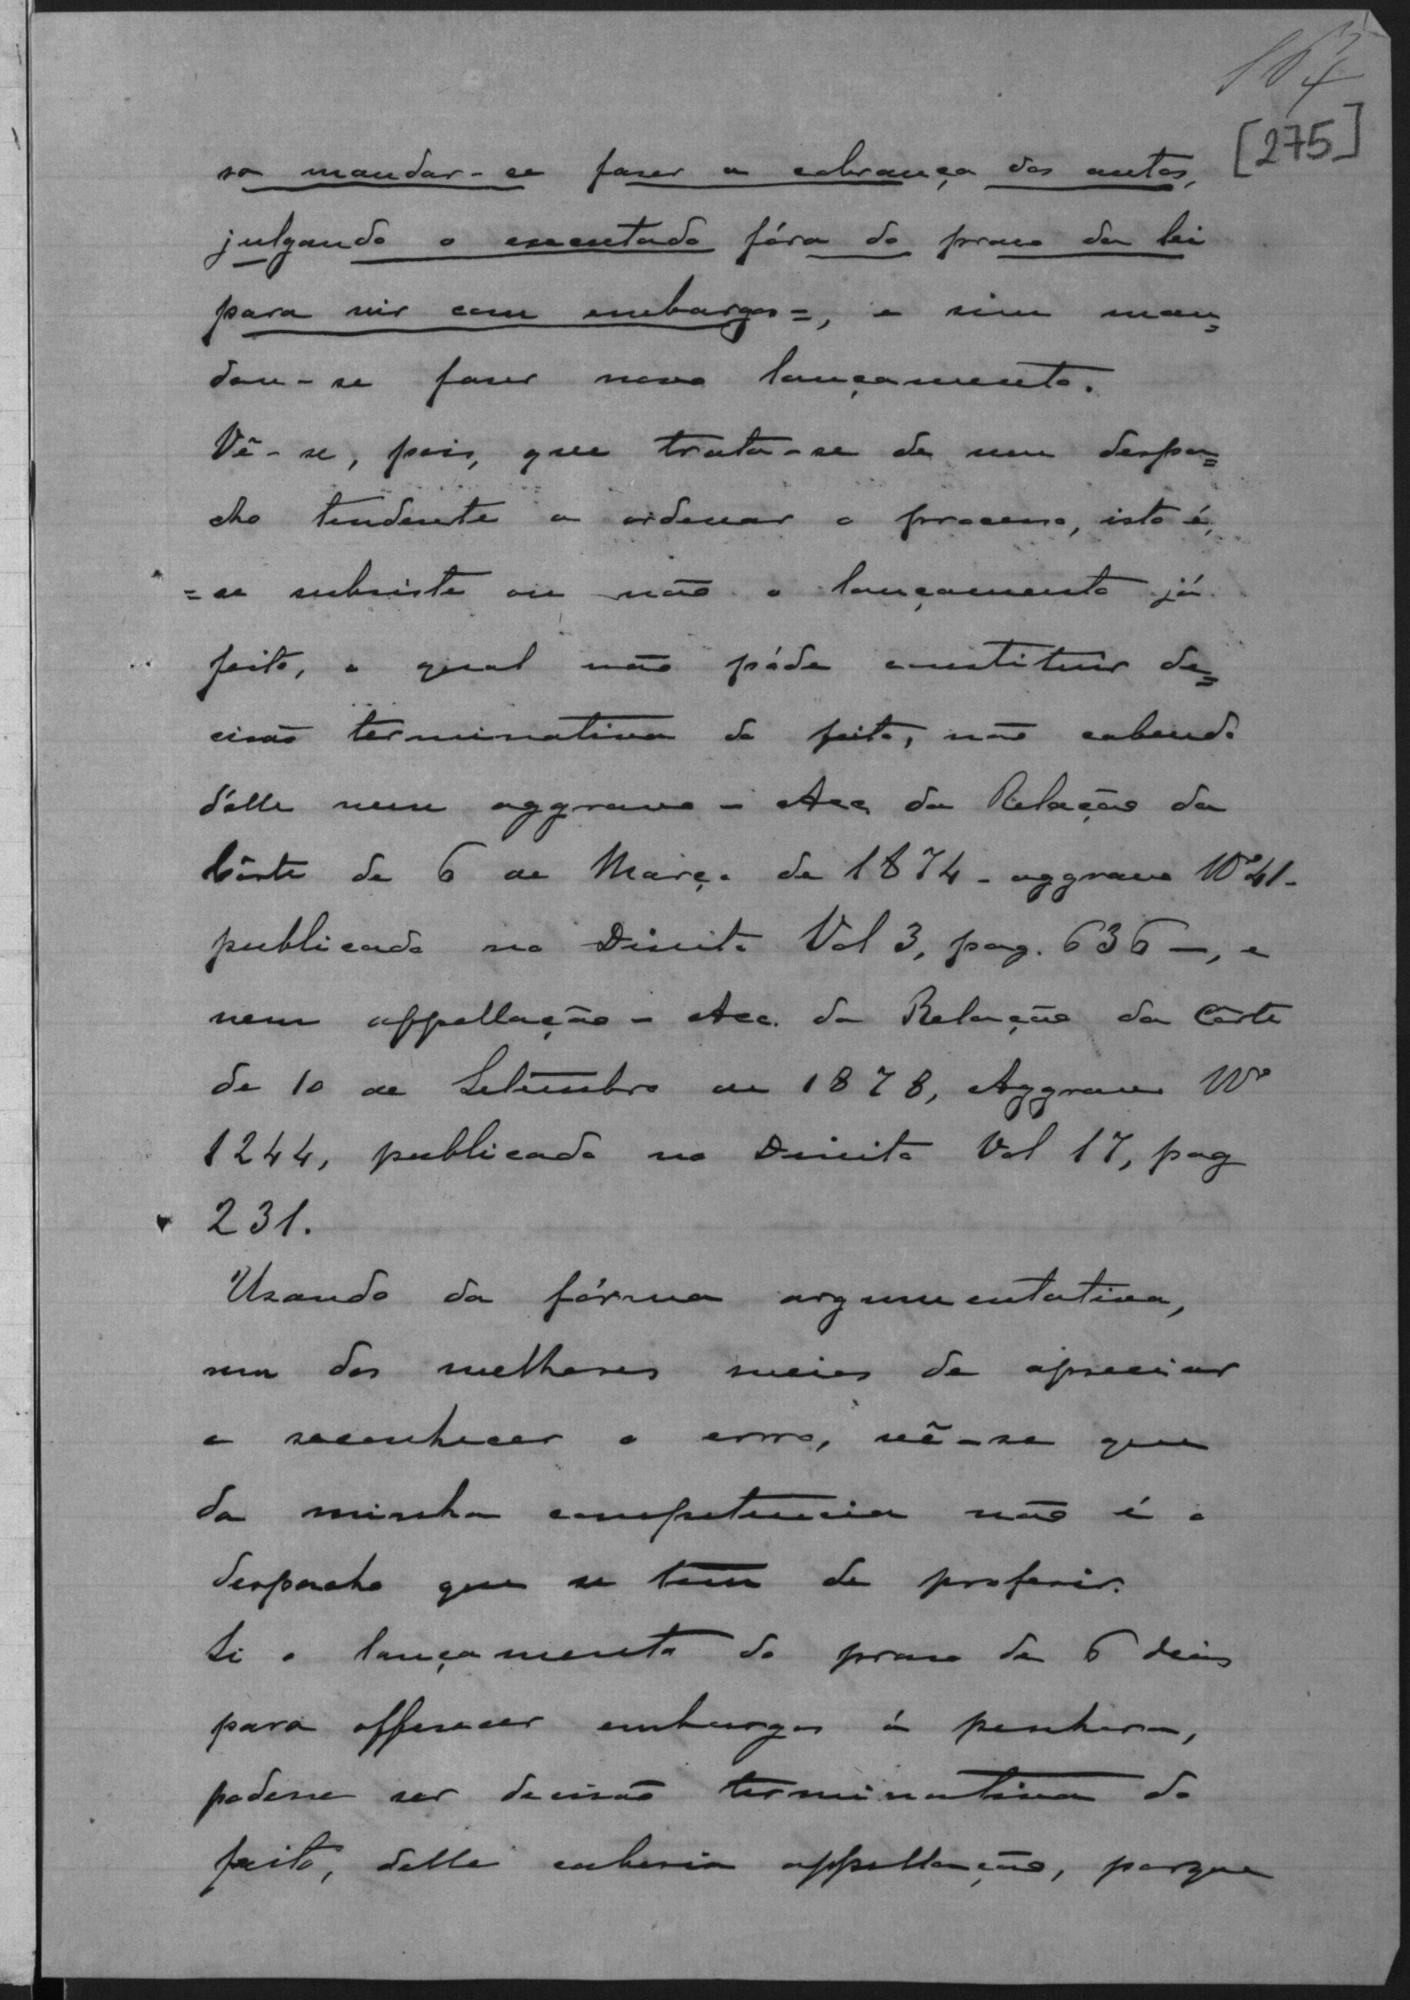 167
[275]
so mandar-se fazer a cobrança dos autos,
julgando o executado fóra do praso da lei
para vir com embargos=, e sim man=
dou-se fazer novo lançamento.
Vê-se, pois, que trata-se de um despa=
cho tendente a ordenar o processo, isto é,
=se subsiste ou não o lançamento já
feito, o qual não póde constituir de=
cisão terminativa do feito, não cabendo
d'elle nem aggravo - Acc. da Relação da
Côrte de 6 de Março de 1874 - aggravo Nº 41-
publicado no Direito Vol 3, pag. 636 —, e
nem appellação - Acc. da Relação da Côrte
de 10 de Setembro de 1878, Aggravo Nº
1244, publicado no Direito Vol 17, pag
231.
Usando da fórma argumentativa,
um dos melhores meios de apreciar
e reconhecer o erro, vê-se que
da minha competencia não é o
despacho que se tem de proferir.
Si o lançamento do praso de 6 dias
para offerecer embargos á penhora,
podesse ser decisão terminativa do
feito, delle caberia appellação, porque